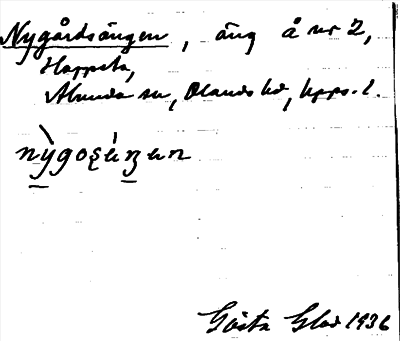 Nygårdsängen, äng å nr 2,
Hoppsta,
Alunda sn, Olands hd, Upps. l.
Gösta Glad 1936